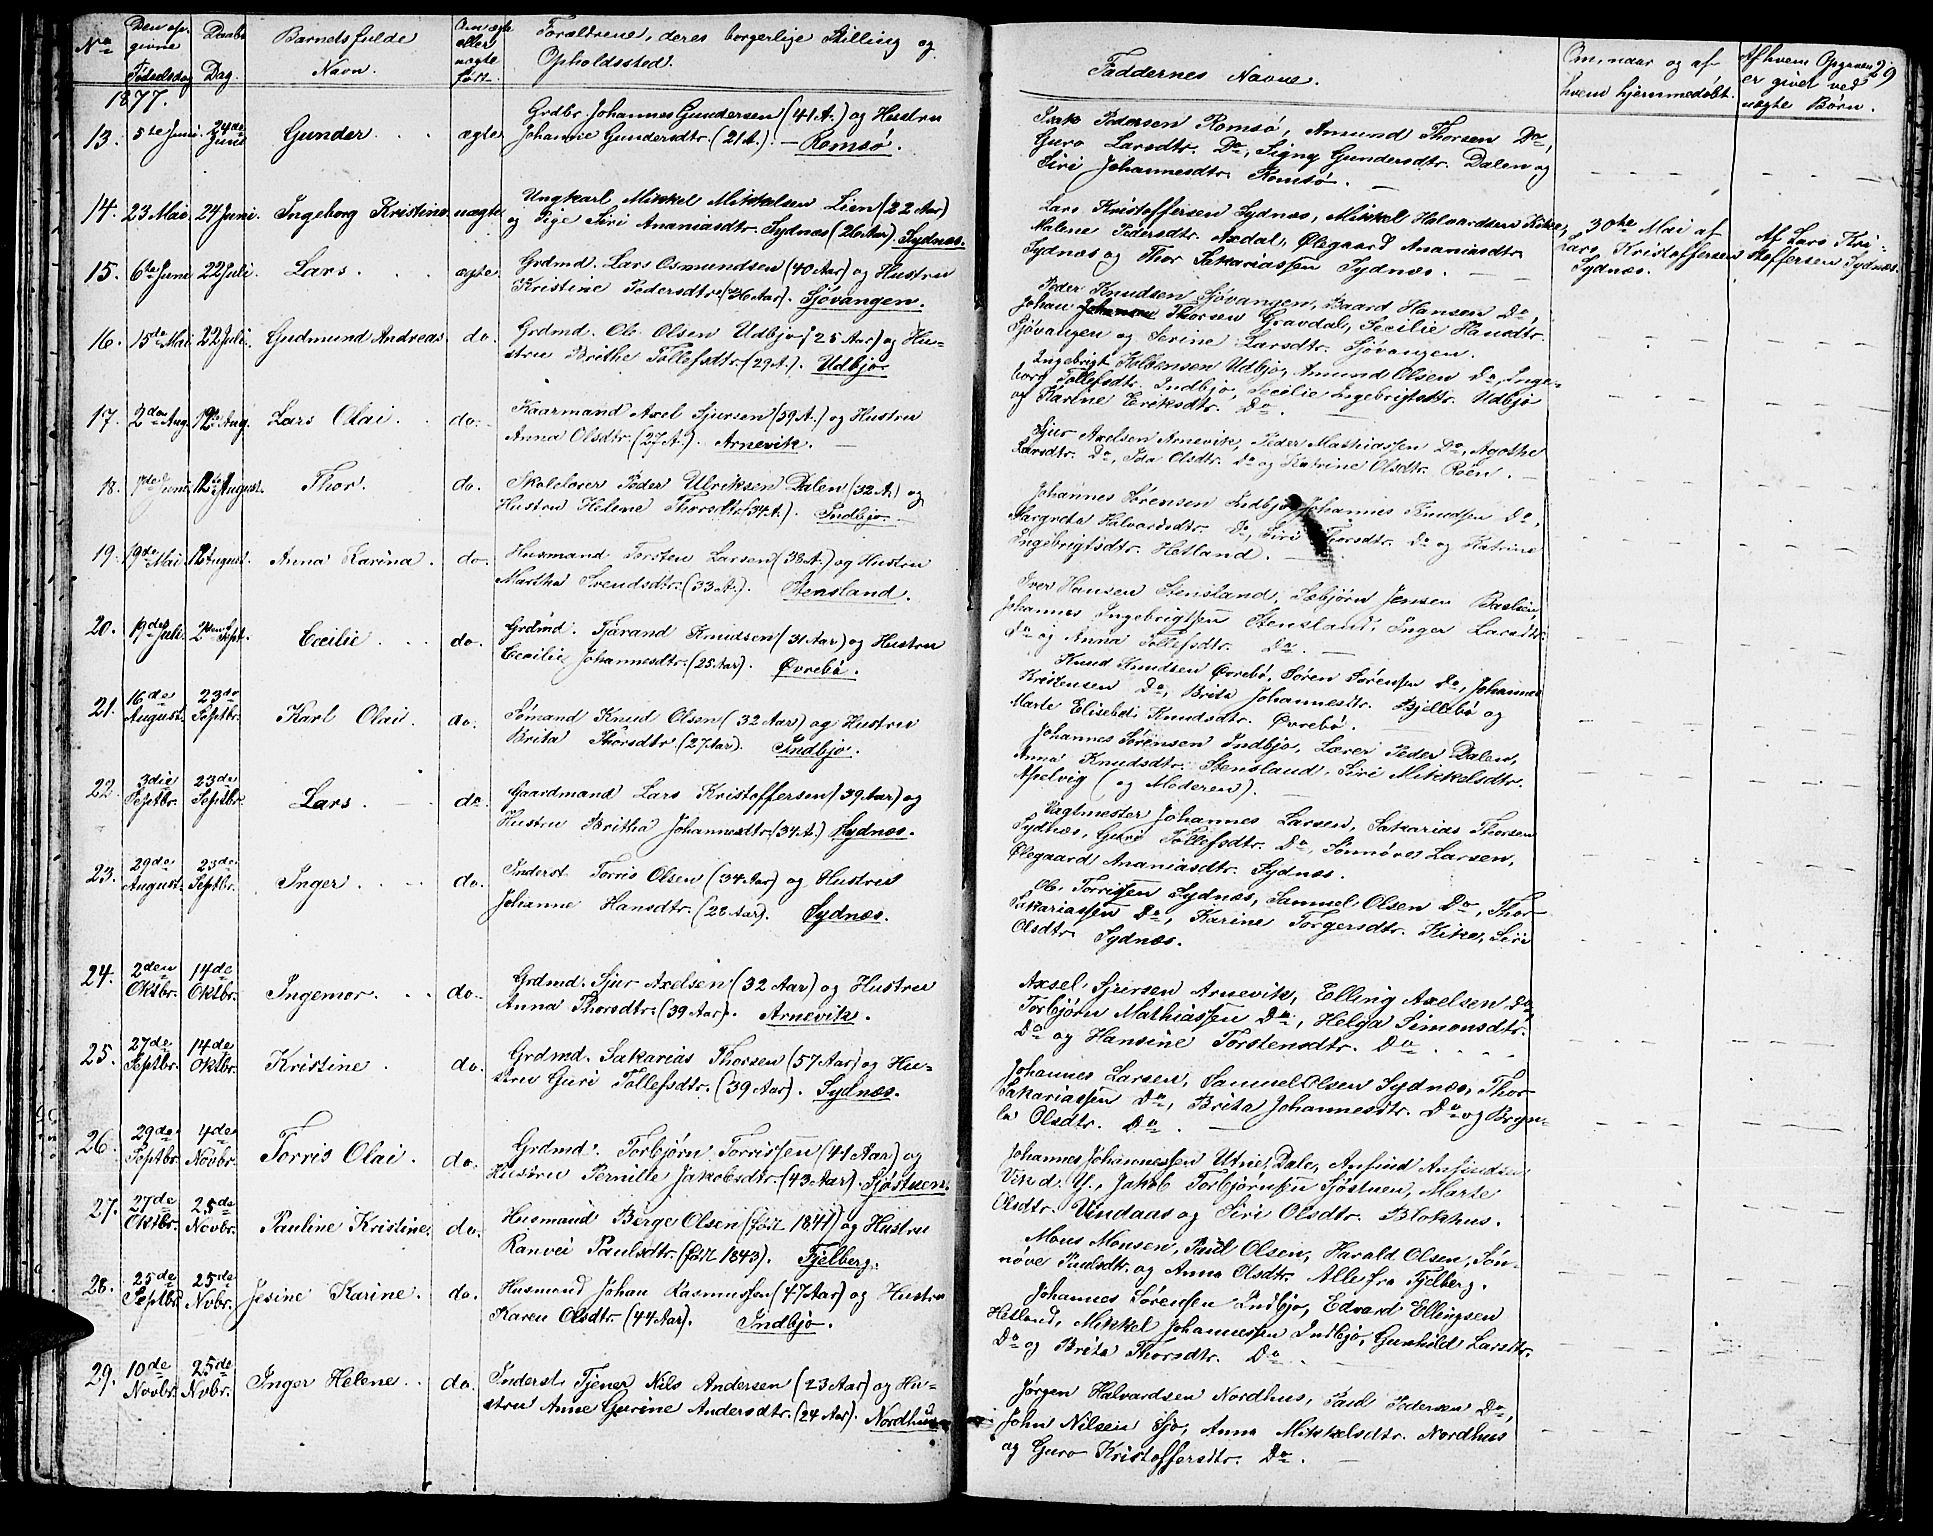 No
Den op-
givne
Fødselsdag
Daabs
Dag.
Barnets fulde
Navn.
Om ægte
eller
uægte
født.
Forældrene, deres borgerlige Stilling og
Opholdssted.
Faddernes Navne.
Om naar og af
hvem hjemmedøbt.
Af hvem Opgaven
er givet ved
uægte Børn.
29
1877.
13. 5te Juni. 24de Juni Gunder ægte
Grdbr. Johannes Gundersen (41 A.) og Hustru
Johanne Gundersdtr. (21 A.). — Romsø.
Isak Pedersen Romsø, Amund Thorsen Do,
Guro Larsdtr. Do, Signy Gundersdtr. Dalen og
Siri Johannesdtr. Romsø.
14. 23 Mai. 24 Juni. Ingeborg Kristine. uægte
Ungkarl Mikkel Mikkelsen Lien (22 Aar)
og Pige Siri Ananiasdtr. Sydnæs (26 Aar). Sydnæs.
Lars Kristoffersen Sydnæs, Mikkel Halvardsen
Malene Pedersdtr. Axdal, Ølegaard Ananiasdtr.
Sydnæs og Thor Sakariassen Sydnæs.
30te Mai af
Lars Kristoffersen
Sydnæs.
Af Lars Kri-
stoffersen Sydnæs.
15. 6te Juni 22 Juli. Lars ægte
Grdmd. Lars Osmundsen (40 Aar) og Hustru
Kristine Pedersdtr. (36 Aar). Sjøvangen.
Peder Knudsen Sjøvangen, Baard Hansen Do,
Johan Thorsen Gravdal, Secilie Hansdtr.
Sjøvangen og Serine Larsdtr. Sjøvangen.
16. 15de Mai 22 Juli. Gudmund Andreas. do.
Grdmd. Ole Olsen Udbjo (25 Aar) og Hu-
stru Brithe Tollefsdtr. (29 A.). Udbjo
Ingebrigt Udbjo, Amund Olsen Do, Inge-
borg Tollefsdtr. Indbjo, Secilie Ingebrigtsdtr. Udbjo
og Karine Eriksdtr. Do.
17. 2den Aug. 12te Aug. Lars Olai. do.
Kaarmand Axel Sjursen (39 A.) og Hustru
Anna Olsdtr. (27 A.). Arnevik.
Sjur Axelsen Arnevik, Peder Mathiassen Do, Agothe
Larsdtr. Do, Ida Olsdtr. Do og Katrine Olsdtr. Røen.
18. Juni 12te August. Thor. do.
Skolelærer Peder Ulriksen Dalen (32 A.) og
Hustru Helene Thorsdtr. (34 A.). Indbjo.
Johannes Sørensen Indbjo, Johannes Knudsen Do,
Margrete Halvardsdtr. Do, Siri Thorsdtr. Do og Katrine
Ingebrigtsdtr. Hetland.
19. 19de Mai 12 August. Anna Karina. do.
Husmand Torsten Larsen (38 A.) og Hustru
Martha Svendsdtr. (33 A.). Stensland.
Iver Hansen Stensland, Sæbjørn Jensen
Johannes Ingebrigtsen Stensland, Inger Larsdtr.
Do og Anna Tollefsdtr. Do.
20. 19de Juli. 2den Sept. Cecilie do.
Grdmd. Tjerand Knudsen (31 Aar) og Hustru
Cecilie Johannesdtr. (25 Aar). Øvrebø.
Knud Knudsen Øvrebø, Søren Sørensen Do, Johannes
Kristensen Do, Brita Johannesdtr. Bjellebø og
Marte Elisebet Knudsdtr. Øvrebø.
21. 16de August. 23de Septbr. Karl Olai do.
Sømand Knud Olsen (32 Aar) og Hustru
Brita Thorsdtr. (27 Aar). Indbjo.
Johannes Sørensen Indbjo, Lærer Peder Dalen,
Anna Knudsdtr. Stensland, Siri Mikkelsdtr.
Apelvig (og Moderen).
22. 3die Septbr. 23de Septbr. Lars. do.
Gaardmand Lars Kristoffersen (39 Aar) og
Hustru Britha Johannesdtr. (34 A.) Sydnæs.
Vagtmester Johannes Larsen, Sakarias Thorsen
Sydnæs, Guri Tollefsdtr. Do, Sønnøve Larsen,
Ølegaard Ananiasdtr. Sydnæs.
23. 29de August. 23de Septbr. Inger. do.
Inderst. Torris Olsen (34 Aar) og Hustru
Johanne Hansdtr. (28 Aar). Sydnæs.
Ole Torrissen Sydnæs, Samuel Olsen Do, Thor
Sakariassen Do, Karine Torgersdtr. Kike, Siri
Olsdtr. Sydnæs.
24. 2den Oktbr. 14de Oktbr. Ingemor. do.
Grdmd. Sjur Axelsen (32 Aar) og Hustru
Anna Thorsdtr. (39 Aar). Arnevik.
Axsel Sjursen Arnevik, Elling Axelsen Do,
Torbjørn Mathiassen Do, Helga Simonsdtr.
Do og Hansine Torstensdtr. Do.
25. 27de Septbr. 14de Oktbr. Kristine. do.
Grdmd. Sakarias Thorsen (57 Aar) og Hu-
stru Guri Tollefsdtr. (39 Aar). Sydnæs.
Johannes Larsen, Samuel Olsen Sydnæs, Thor
Sakariassen Do, Brita Johannesdtr. Do og Bryn-
la Olsdtr. Do.
26. 29de Septbr. 4de Novbr. Torris Olai. do.
Grdmd. Torbjørn Torrissen (41 Aar) og
Hustru Pernille Jakobsdtr. (43 Aar). Sjøstuen.
Johannes Johannessen Utne, Dale, Anfind Anfindsen
Vik d. Y., Jakob Torbjørnsen Sjøstuen, Marte
Olsdtr. Vindaas og Siri Olsdtr. Blokhus.
27. 27de Oktbr. 25de Novbr. Pauline Kristine. do.
Husmand Berge Olsen (født 1841) og Hustru
Ranvei Paulsdtr. (født 1843). Fjelberg.
Mons Monsen, Paul Olsen, Harald Olsen, Søn-
nøve Paulsdtr. og Anna Olsdtr. Alle fra Fjelberg.
28. 25de Septbr. 25de Nvbr. Jesine Karine. do.
Husmand Johan Rasmussen (47 Aar) og Hustru
Karen Olsdtr. (44 Aar). Indbjo.
Johannes Sørensen Indbjo, Edvard Ellingsen
Hetland, Mikkel Johannessen Indbjo, Gunhild Larsdtr.
Do og Brita Thorsdtr. Do.
29. 10de Novbr. 25de Nvbr. Inger Helene. do.
Inderst. Tjener Nils Andersen (23 Aar) og Hu-
stru Anne Gurine Andersdtr. (24 Aar). Nordhus
Jørgen Halvardsen Nordhus, Paul Pedersen Do,
John Nilsen Sjo, Anna Mikkelsdtr. Nordhus
og Guro Kristoffersdtr. Do.